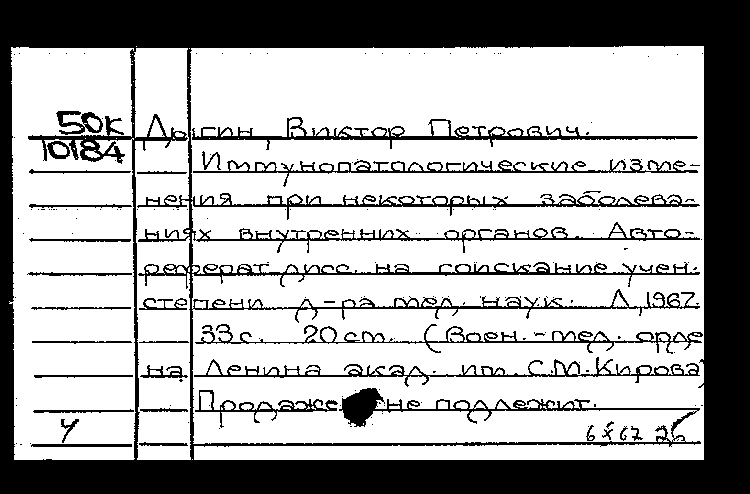 50К Лыгин, Виктор Петрович.
10184 Иммунопатологические изме-
нения при некоторых заболева-
ниях внутренних органов. Авто-
реферат дисс. на соискание учен.
степени д-ра мед. наук. Л, 1967.
33 с. 20 см. (Воен.-мед. орде
на Ленина акад. им. С.М. Кирова)
Продаже не подлежит.